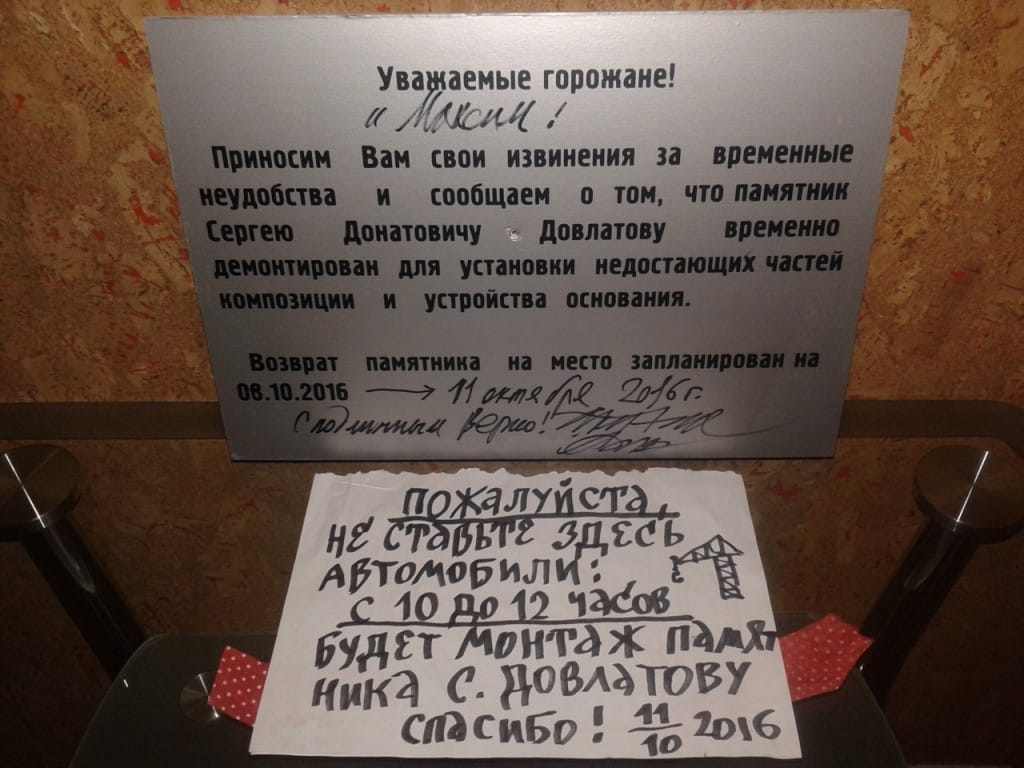 Уважаемые горожане!
и Максим!
Приносим Вам свои извинения за временные
неудобства и сообщаем о том, что памятник
Сергею Донатовичу Довлатову временно
демонтирован для установки недостающих частей
композиции и устройства основания.
Возврат памятника на место запланирован на
08.10.2016 → 11 октября 2016 г.
С подлинным верно!
ПОЖАЛУЙСТА,
НЕ СТАВЬТЕ ЗДЕСЬ
АВТОМОБИЛИ:
С 10 ДО 12 ЧАСОВ
БУДЕТ МОНТАЖ ПАМЯТ
НИКА С. ДОВЛАТОВУ
СПАСИБО! 11/10 2016